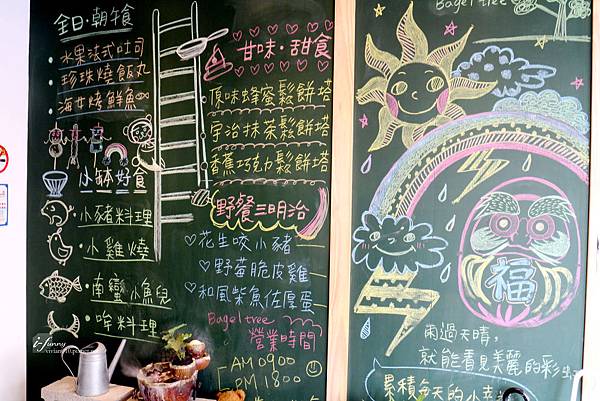 全日·朝午食
·水果法式吐司
·珍珠燒飯丸
·海女烤鮮魚
小缽好食
·小豬料理
·小雞燒
·南蠻小魚兒
·哞料理
甘味·甜食
原味蜂蜜鬆餅塔
宇治抹茶鬆餅塔
香蕉巧克力鬆餅塔
野餐三明治
♡花生咬小豬
♡野莓脆皮雞
♡和風柴魚佐厚蛋
Bagel tree
營業時間
AM 0900
PM 1800
Bagel tree
福
雨過天晴,
就能看見美麗的彩
累積每天的小幸
i-funny